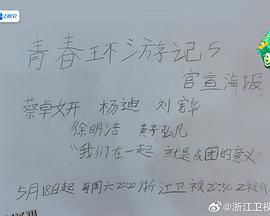 青春环游记5
官宣海报
蔡卓妍 杨迪 刘宪华
徐明浩 黄子弘凡
“我们在一起 就是本团的意义”
5月18日起 每周六20:20 浙江卫视 20:50 Z视介
@浙江卫视